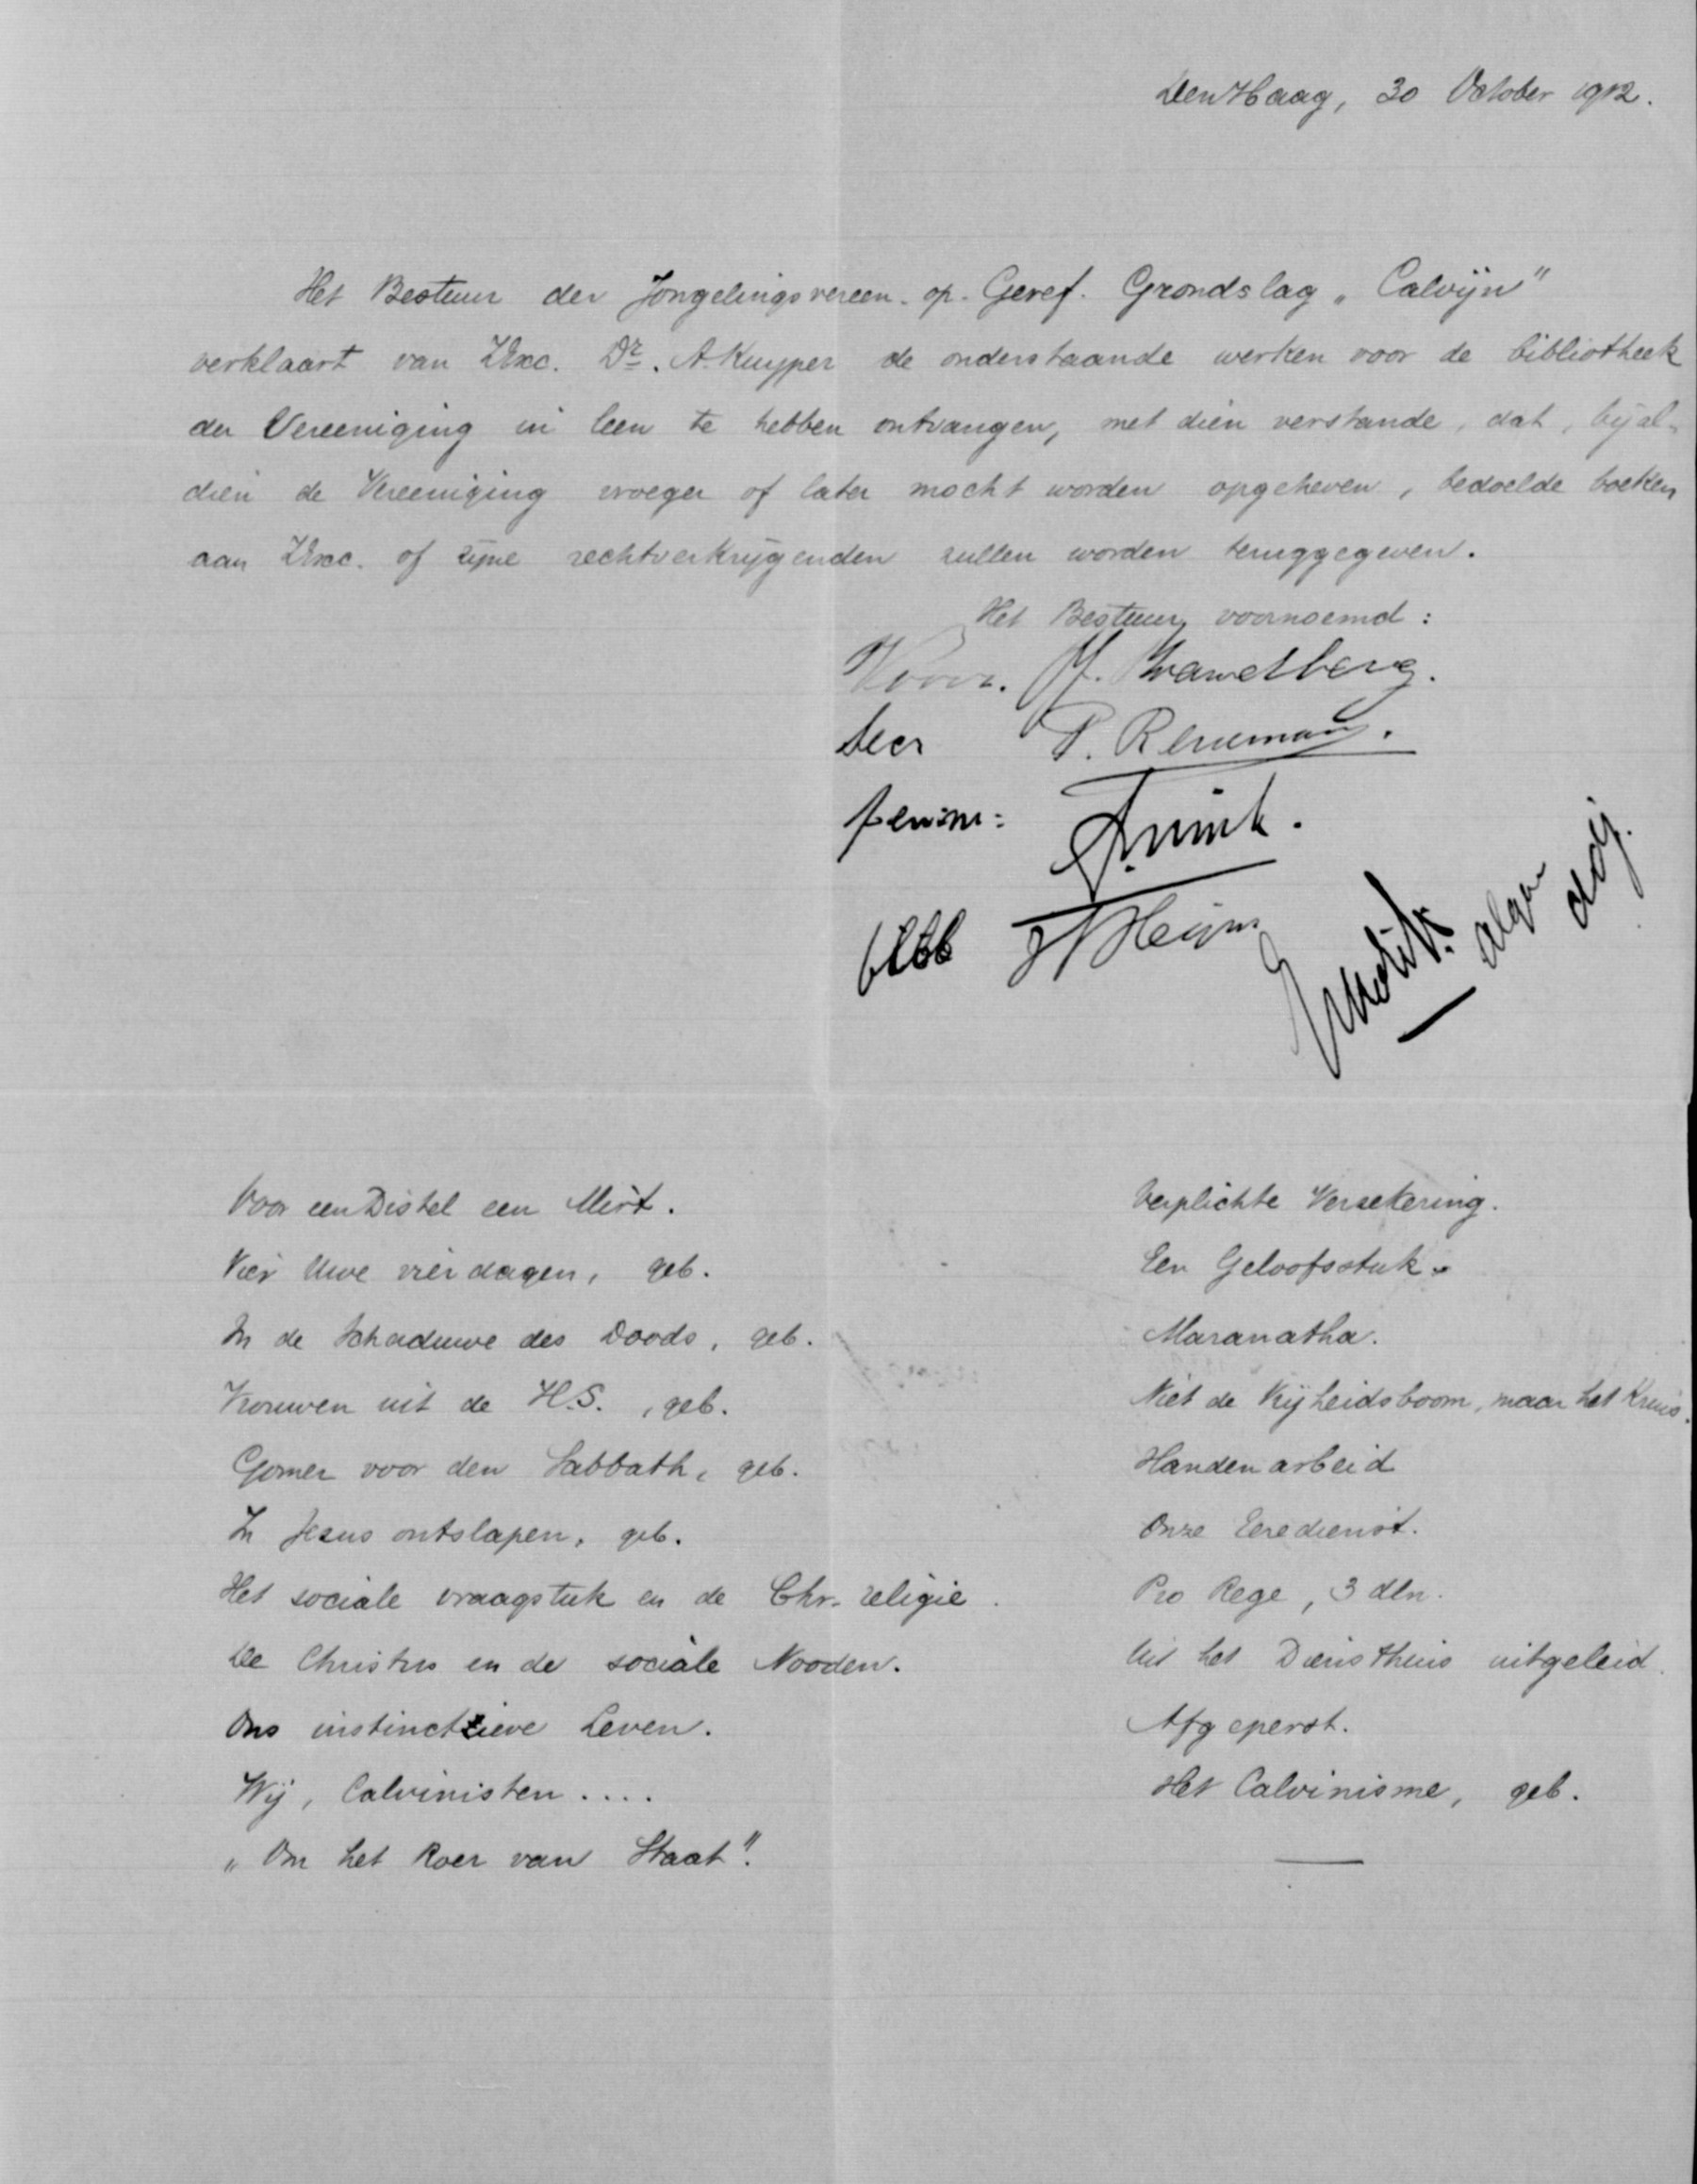 Den Haag, 30 October 1912.
Het Bestuur der Jongelingsvereen. op. Geref. Grondslag „Calvijn"
verklaart van ZExc. Dr. A. Kuyper de onderstaande werken voor de bibliotheek
der Vereeniging in leen te hebben ontvangen, met dien verstande, dat, bijal-
dien de Vereeniging vroeger of later mocht worden opgeheven, bedoelde boeken
aan ZExc. of zijne rechtverkrijgenden zullen worden teruggegeven.
Het Bestuur, voornoemd:
Voorz.
Secr P.
Penním:
Bibl Heijns
algem
adj.
Voor een Distel een Mirt.
Vier Uwe vierdagen, geb.
In de Schaduwe des Doods, geb.
Vrouwen uit de H.S., geb.
Gomer voor den Sabbath, geb.
In Jezus ontslapen, geb.
Het sociale vraagstuk en de Chr. religie.
De Christus en de sociale Nooden.
Ons instinctieve Leven.
Wij, Calvinisten....
„Om het Roer van Staat".
Verplichte Verzekering.
Een Geloofsstuk.
Maranatha.
Niet de Vrijheidsboom, maar het Kruis.
Handenarbeid
Onze Eeredienst.
Pro Rege, 3 dln.
Uit het Diensthuis uitgeleid.
Afgeperst.
Het Calvinisme, geb.